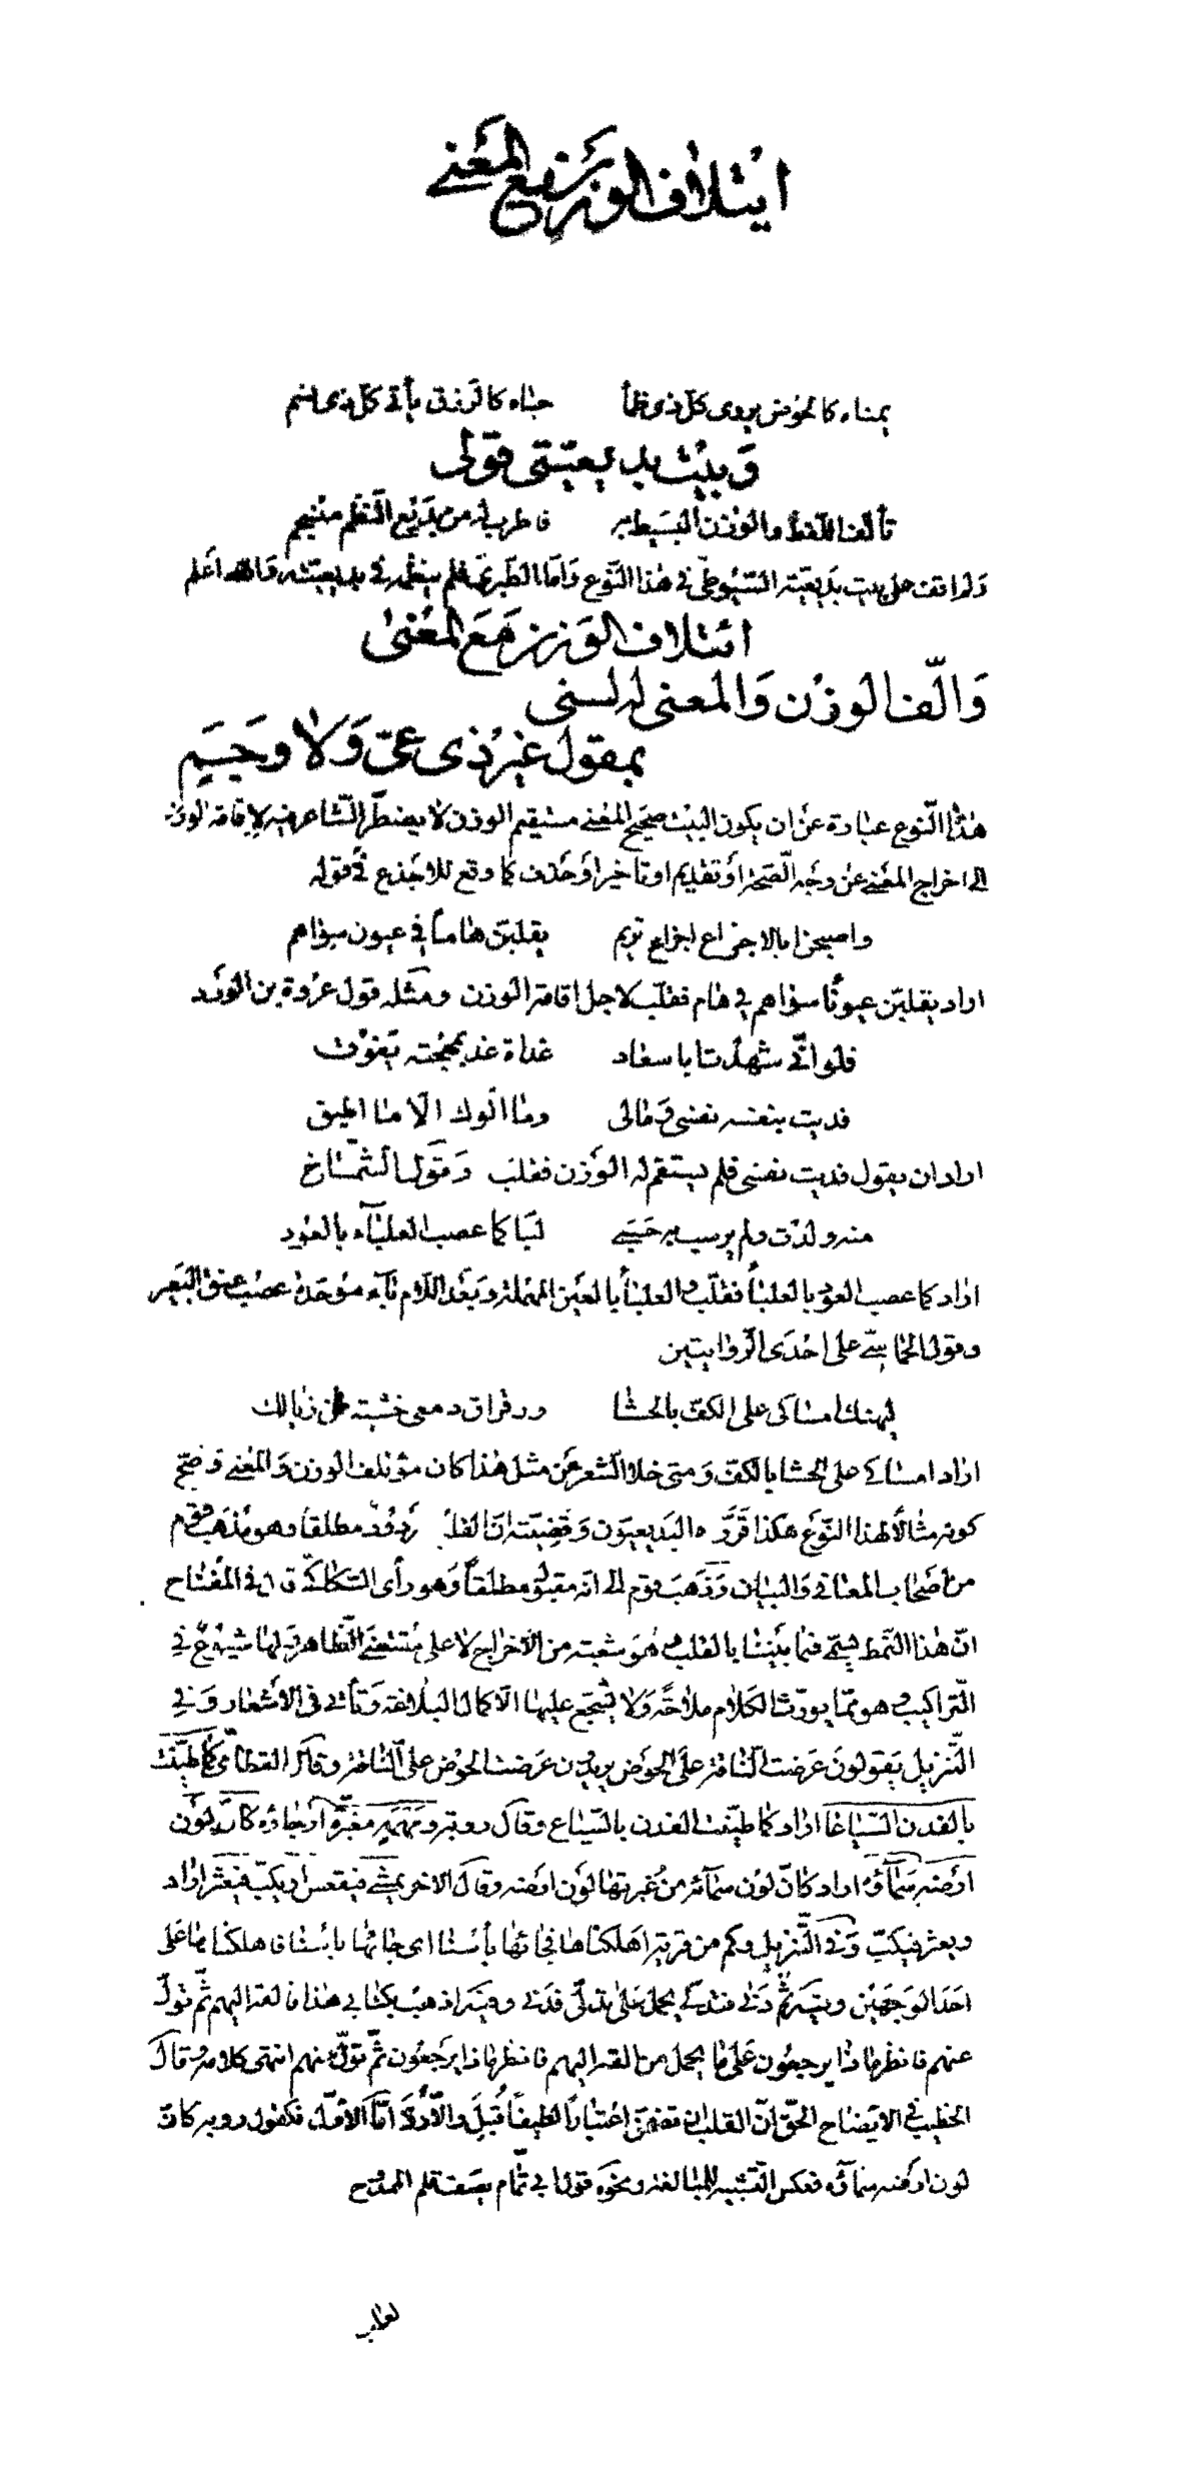 ائتلاف الوزن مع المعنى
يمناه كالحوض يروى كل ذى ظمأ جناه كالرزق يأتى كل ذى نسم
وبيت بديعيتى قولى
تألف اللفظ والوزن البسيط به فاطرب له من بديع النظم منسجم
ولم اقف على بيت بديعية السيوطى فى هذا النوع وأما الطبرى فلم ينظمه فى بديعيته والله اعلم
ائتلاف الوزن مع المعنى
وألّف الوزن والمعنى له لسنى
بمقول غير ذى عىّ ولا وجم
هذا النوع عبارة عن ان يكون البيت صحيح المعنى مستقيم الوزن لا يضطر الشاعر فيه لاقامة الوزن
الى اخراج المعنى عن وجه الصحة او تقديم او تأخير أو حذف كما وقع للاجذع فى قوله
واصبحن بالاجزاع اجزاع تريم يقلبن هاما فى عيون سواهم
اراد يقلبن عيونا سواهم فى هام فقلب لاجل اقامة الوزن ومثله قول عروة بن الورد
فلو انى شهدت ابا سعاد غداة غد بمهجته يفوق
فديت بنفسه نفسى ومالى وما الوك الا ما اطيق
اراد ان يقول فديت نفسه بنفسى فلم يستقم له الوزن فقلب وقول الشماخ
منه ولدت ولم يؤشب به حسبى ليا كما عصب العلباء بالعود
اراد كما عصب العود بالعلباء فقلب والعلباء بالعين المهملة وبعد اللام باء موحدة عصب عنق البعير
وقول الحماسى على احدى الروايتين
ليهنك امساكى على الكف بالحشا ورقراق دمعى خشية من زيالك
اراد امساكى على الحشا بالكف ومتى خلا الشعر عن مثل هذا كان مؤتلف الوزن والمعنى فصح
كونه مثالا لهذا النوع هكذا قرره البديعيون وقضيته ان القلب مردود مطلقا وهو مذهب قوم
من اصحاب المعانى والبيان وذهب قوم الى انه مقبول مطلقا وهو رأى السكاكى قال فى المفتاح
ان هذا النمط يسمى فيما بيننا بالقلب وهو شعبة من الاخراج لا على مقتضى الظاهر ولها شيوع فى
التراكيب وهو مما يورث الكلام ملاحة ولا يشجع عليها الا كمال البلاغة وتأتى فى الاشعار وفى
التنزيل يقولون عرضت الناقة على الحوض يريدون عرضت الحوض على الناقة وقال القطامى كما طينت
بالفدن السياعا اراد كما طينت الفدن بالسياع وقال رؤبة ومهمه مغبرة أرجاؤه كأن لون
ارضه سماؤه اراد كان لون سمائه من غبرتها لون ارضه وقال الاخر يمشى فيقعس او يكب فيعثر اراد
ويعثر فيكب وفى التنزيل وكم من قرية اهلكناها فجاءها بأسنا اى جاءها بأسنا فاهلكناها على
احد الوجهين وفيه ثم دنى فتدلى يحمل على تدلى فدنى وفيه اذهب بكتابى هذا فالقه اليهم ثم تول
عنهم فانظر ماذا يرجعون على ما يحمل من القه اليهم فانظر ماذا يرجعون ثم تول عنهم انتهى كلامه وقال
الخطيب فى الايضاح الحق ان القلب ان تضمن اعتبارا لطيفا قبل والا رد اما الاول فكقول رؤبة كان
لون ارضه سماؤه فعكس التشبيه للمبالغة ونحوه قول ابى تمام يصف قلم الممدوح
لعاب